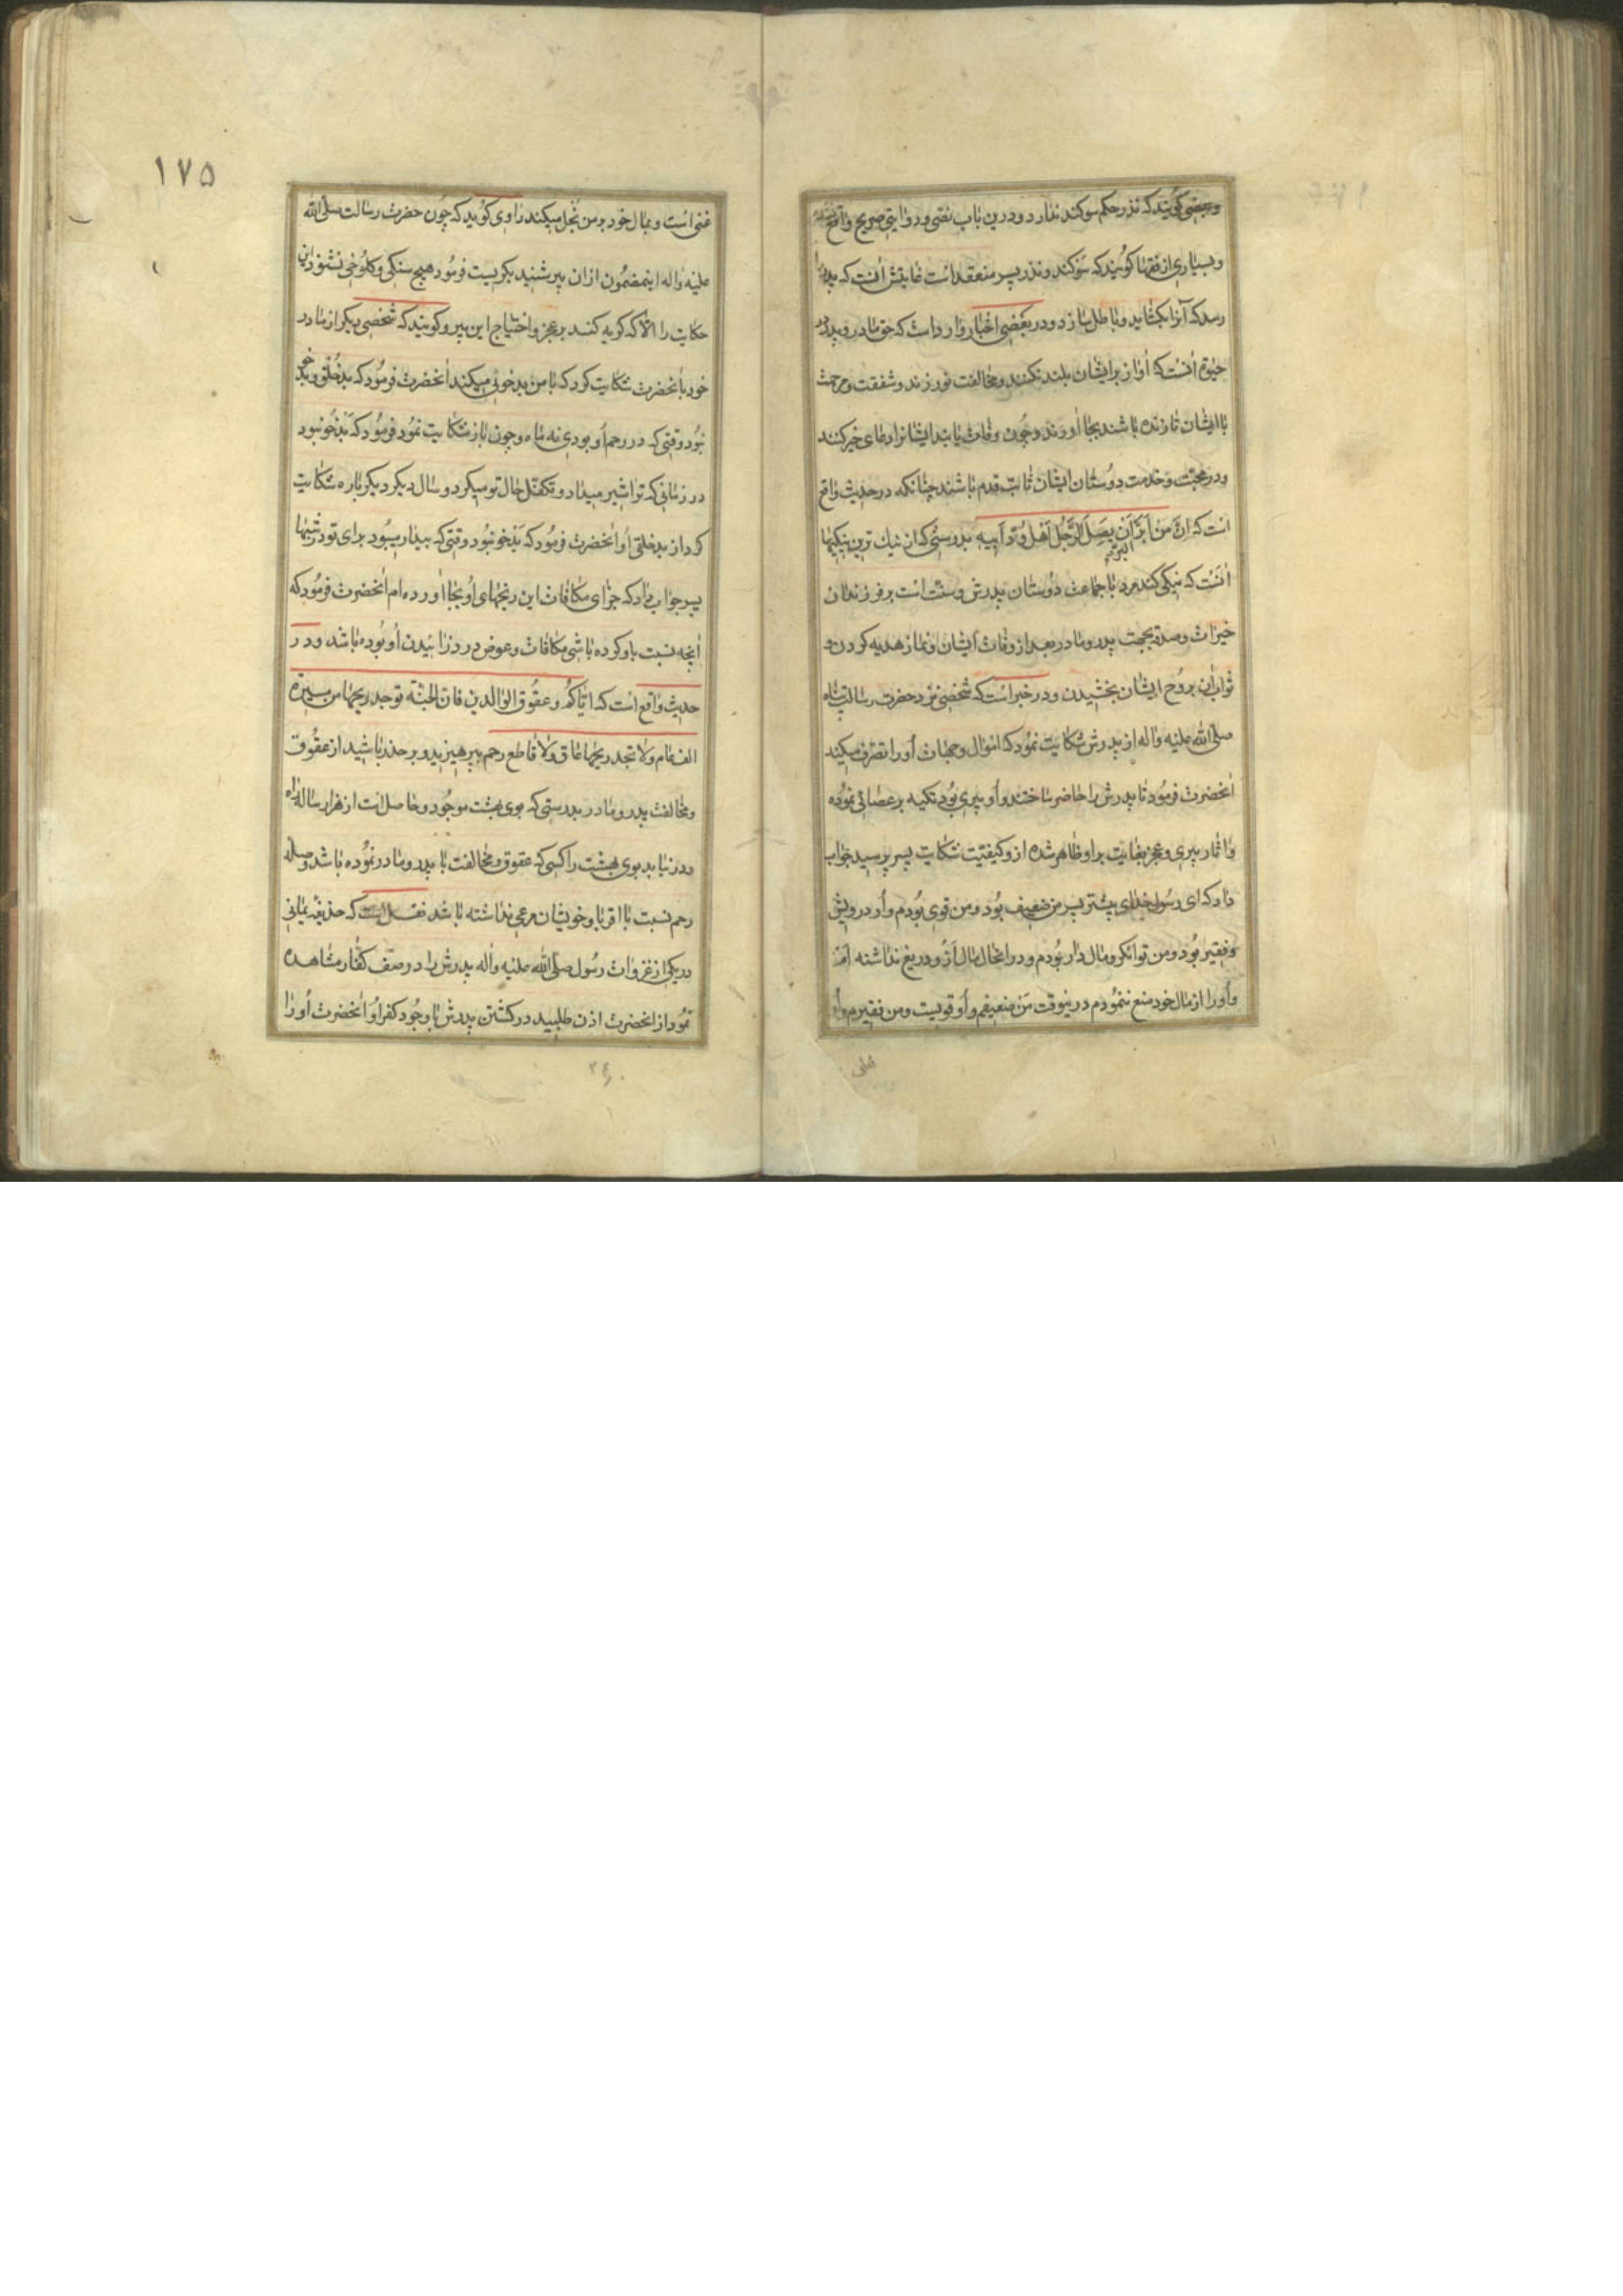 وبعضی کویند که نذر حکم سوکند ندارد و درین باب نصی و روایتی صریح واقع نشده
وبسیاری از فقها کویند که سوکند و نذر پسر منعقد است غایتش آنست که پدر را
رسد که آنرا بکشاید و باطل سازد و در بعضی اخبار وارد است که حق مادر و پدر در
حیوة آنست که آواز بر ایشان بلند نکنند و مخالفت نورزند و شفقت و مرحمت
با ایشان تا زنده باشند بجا آورند و چون وفات یابند ایشانرا دعای خیر کنند
و در محبت و خدمت دوستان ایشان ثابت قدم باشند چنانکه در حدیث واقع
است که ان من ابر البر ان یصل الرجل اهل ود ابیه بدرستی که از نیک ترین نیکیها
آنست که نیکی کند مرد با جماعت دوستان پدرش و سنت است بر فرزندان
خیرات و صدقه بجهت پدر و مادر بعد از وفات ایشان و نماز هدیه کردن و
ثواب آن بروح ایشان بخشیدن و در خبر است که شخصی نزد حضرت رسالت پناه
صلی الله علیه واله از پدرش شکایت نمود که اموال و جهات او را تصرف میکند
آنحضرت فرمود تا پدرش را حاضر ساختند و او پیری بود تکیه بر عصائی نموده
و اثار پیری و عجز بغایت بر او ظاهر شده ازو کیفیت شکایت پسر پرسید جواب
داد که ای رسول خدای پیشتر پسر من ضعیف بود و من قوی بودم و او درویش
و فقیر بود و من توانکر و مال دار بودم و در انحال مال ازو دریغ نداشته ام
و او را از مال خود منع ننمودم درینوقت من ضعیفم و او قویست و من فقیرم و او
غنی
۱۷۵
غنی است و بمال خود بر من بخل میکند راوی کوید که چون حضرت رسالت صلی الله
علیه واله اینمضمون از ان پیر شنید بکریست فرمود هیچ سنکی و کلوخی نشنود این
حکایت را الا که کریه کند بر عجز و احتیاج این پیر و کویند که شخصی دیکر از مادر
خود بآنحضرت شکایت کرد که با من بد خوئی میکند آنحضرت فرمود که بد خلق و بد خو
نبود وقتی که در رحم او بودی نه ماه و چون باز شکایت نمود فرمود که بد خو نبود
در زمانی که ترا شیر میداد و تکفل حال تو میکرد دو سال دیکر دیکر باره شکایت
کرد از بد خلقی او آنحضرت فرمود که بد خو نبود وقتی که بیدار میبود برای تو در شبها
پسر جواب داد که جزای مکافات این رنجهای او بجا آورده ام آنحضرت فرمود که
آنچه نسبت باو کرده باشی مکافات و عوض درد زائیدن او بوده باشد و در
حدیث واقع است که ایاکم و عقوق الوالدین فان الجنة توجد ریحها من مسیرة
الف عام ولا تجد ریحها عاق ولا قاطع رحم بپرهیزید و بر حذر باشید از عقوق
و مخالفت پدر و مادر بدرستی که بوی بهشت موجود و حاصل است از هزار ساله راه
و در نیابد بوی بهشت را کسی که عقوق و مخالفت با پدر و مادر نموده باشد و صله
رحم نسبت با اقربا و خویشان مرعی نداشته باشد نقل است که حذیفه یمانی
در یکی از غزوات رسول صلی الله علیه واله پدرش را در صف کفار مشاهده
نمود از آنحضرت اذن طلبید در کشتن پدرش با وجود کفر او آنحضرت او را